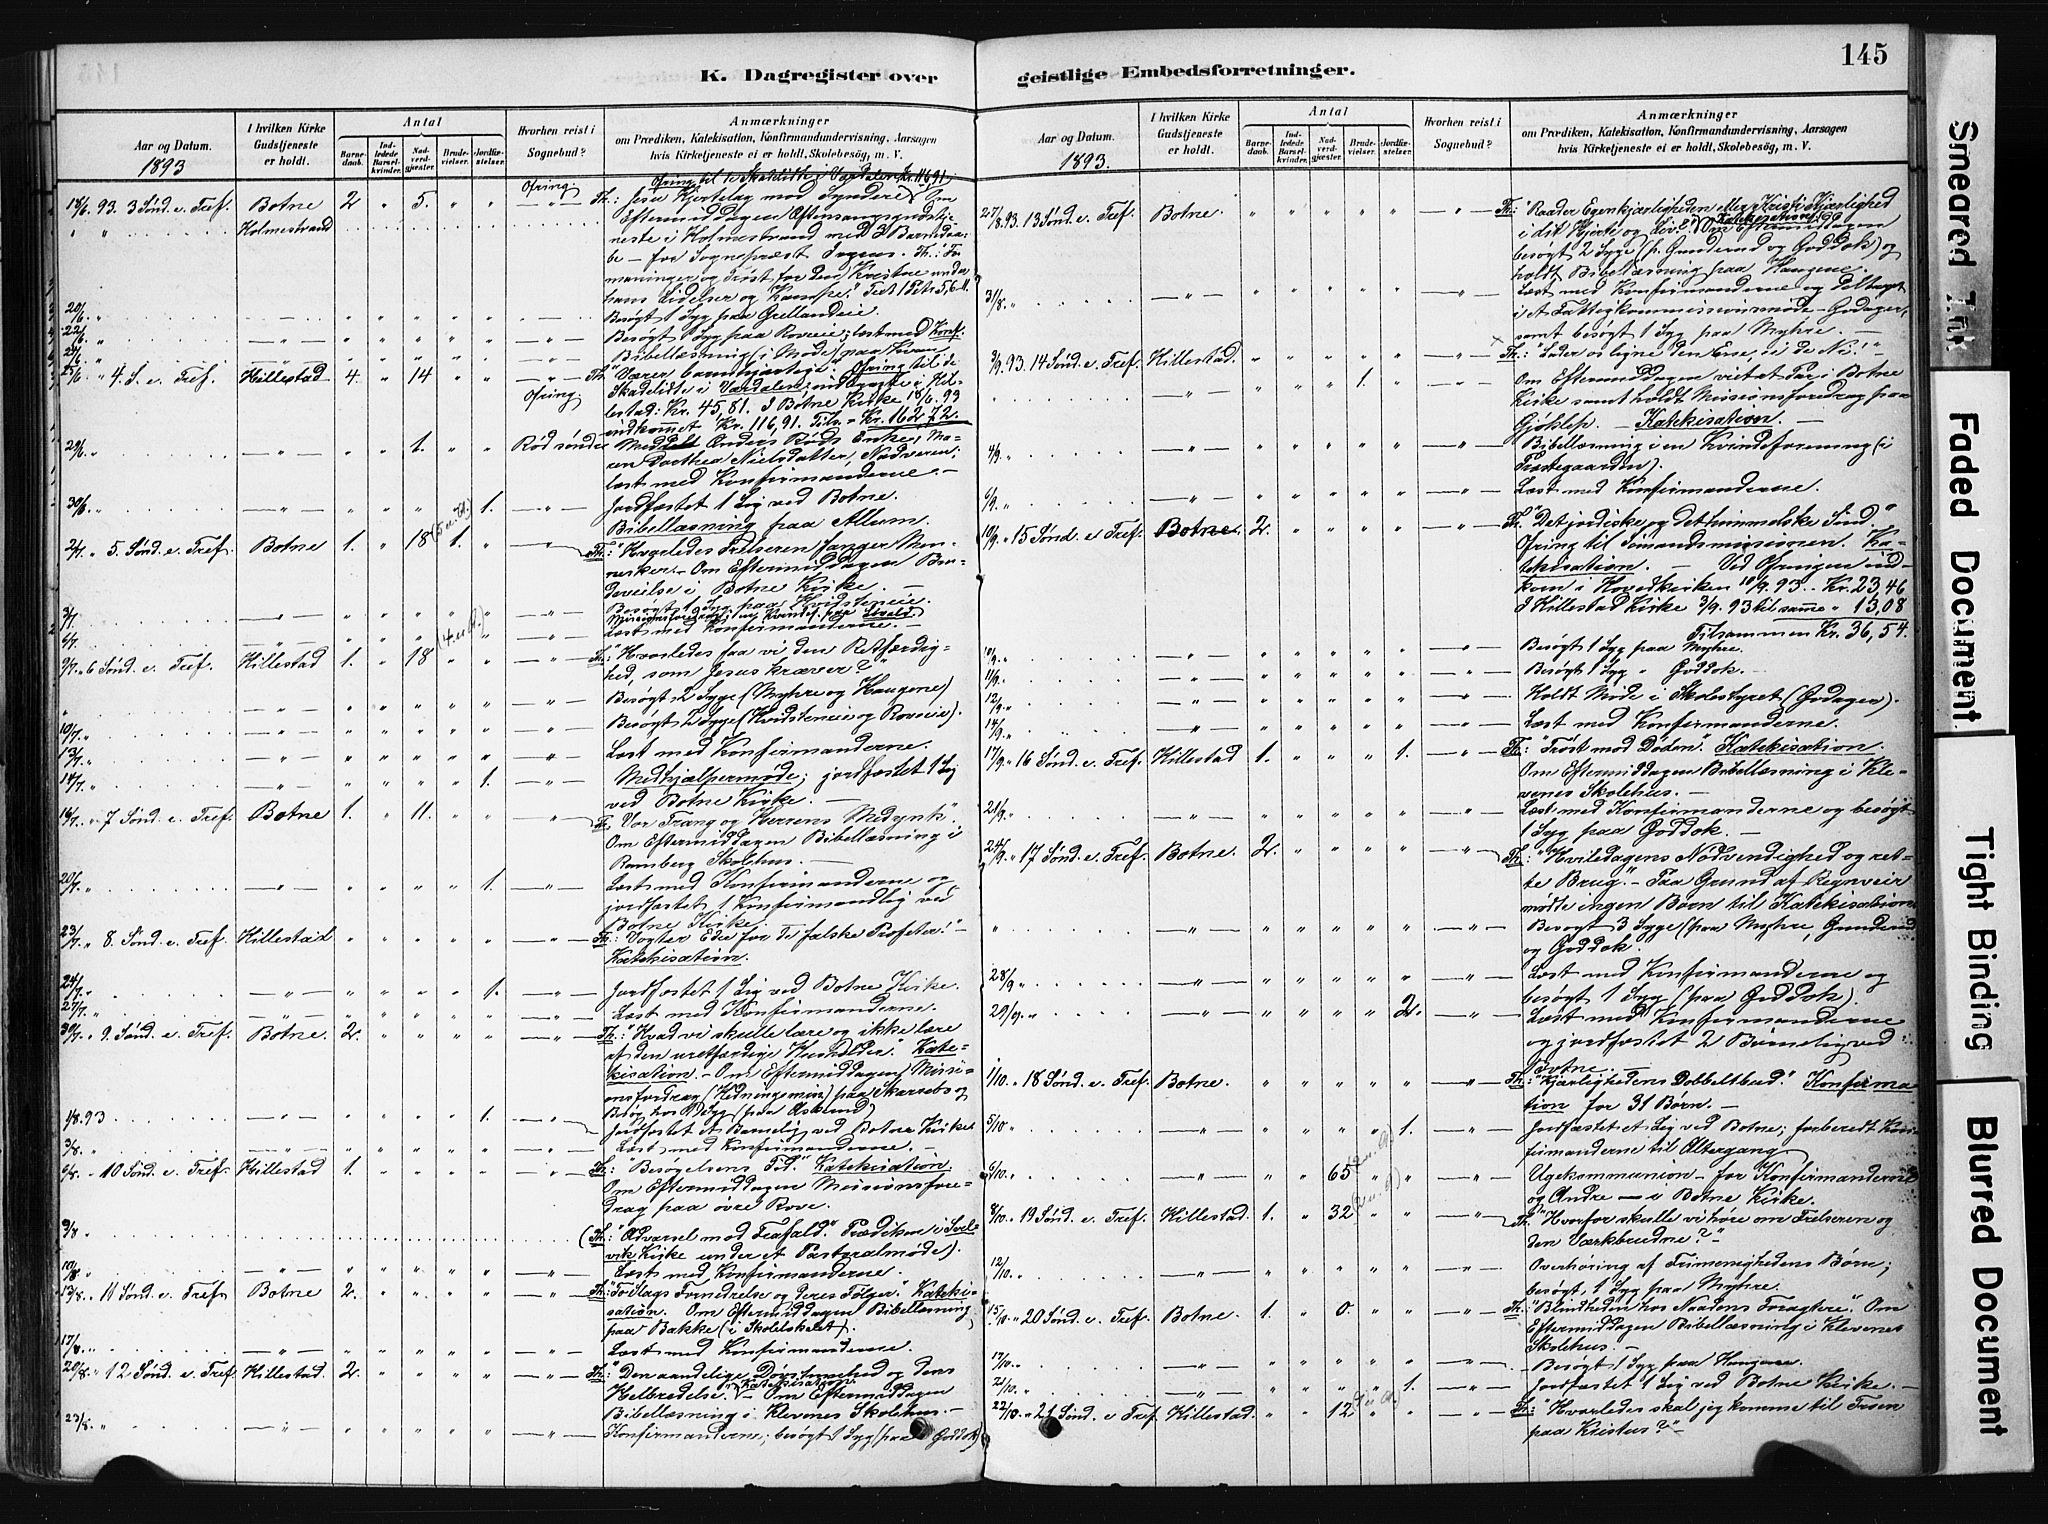 145
K. Dagregister over geistlige Embedsforretninger.
Aar og Datum.
1893
I hvilken Kirke Gudstjeneste er holdt.
Antal
Barnedaab.
Indledede Barselkvinder.
Nadverdgjæster.
Brudevielser.
Jordfæstelser.
Hvorhen reist i Sognebud?
Anmærkninger
om Prædiken, Katekisation, Konfirmandundervisning, Aarsagen
hvis Kirketjeneste ei er holdt, Skolebesøg, m. V.
Ofring til de Skadelidte i Værdalen Kr. 116,91
18/6. 93. 3 Sønd. e. Tref. Botne 2 " 5. " " Ofring Th: Jesu Kjærlighed mod Syndere. Om
" " Holmestrand Eftermiddagen Aftensangsgudstje-
neste i Holmestrand med 3 Barnedaa-
be - for Sognepræst
maninger og Trøst for den Kristne under
hans Lidelser og Kampe." Text 1 Petr. 5, 6-11.
20/6 " Besøgt 1 Syg paa Grellandeie.
22/6 " Besøgt 1 Syg paa Roveeie; læst med Konf.
" Bibellæsning (i Møde) paa
25/6 " 4. S. e. Tref. Hillestad 4. " 14 " " Th: "Værer barmhjertige". Ofring til de
Ofring Skadelidte i Værdalen; indbragte i Hil-
lestad: Kr. 45,81. I Botne Kirke 18/6. 93
indkommet Kr. 116,91. Tils. = Kr. 162,72.
29/6 " 1. " " Rød søndre Meddelt Anders Røds Enke, Ma-
ren Dorthea Nielsdatter, Nadveren;
læst med Konfirmanderne. -
30/6 " 1. Jordfæstet 1 Lig ved Botne.
Bibellæsning paa Allum.
2/7 " 5. Sønd. e. Tref. Botne 1. " 18 (5 u. A.) 1. " Th: "Hvorledes Frelseren fanger Men-
nesker. - Om Eftermiddagen Bru-
devielse i Botne Kirke. -
3/7 " Besøgt 1 Syg paa Hvidsteneie.
6/7 " Læst med Konfirmanderne. -
9/7 " 6 Sønd. e. Tref. Hillestad 1. " 18 (4 u. A.) " " Th: "Hvorledes faa vi den Retfærdig-
hed, som Jesus kræver?"
" Besøgt 2 Syge (Myhre og Haugene)
10/7 " Besøgt 2 Syge (Hvidsteneie og Roveeie).
13/7 " Læst med Konfirmanderne.
14/7 " 1. Medhjælpermøde; jordfæstet 1 Lig
ved Botne Kirke. -
16/7 " 7 Sønd. e. Tref. Botne 1. " 11. " " Th: Vor Trang og Herrens Medynk".
Om Eftermiddagen Bibellæsning i
Ramberg Skolehus. -
20/7 " 1. Læst med Konfirmanderne og
jordfæstet 1 Konfirmandlig ved
Botne Kirke.
23/7 " 8. Sønd. e. Tref. Hillestad Th: "Vogter Eder for de falske Profeter!" -
Katekisation.
24/7 " 1. Jordfæstet 1 Lig ved Botne Kirke.
27/7 " Læst med Konfirmanderne.
30/7 " 9. Sønd. e. Tref. Botne 2. Th: "Hvad vi skulle lære og ikke lære
af den uretfærdige Husholder". Kate-
kisation. - Om Eftermiddagen Missi-
onsforedrag (Hedningemission) paa Skarsebo og
Besøg hos 1 Syg (paa Asklund)
1/8. 93 1. Jordfæstet et Barnelig ved Botne Kirke.
3/8. " Læst med Konfirmanderne.
6/8. " 10 Sønd. e. Tref. Hillestad 1. Th: "Besøgelsens Tid." Katekisation.
Om Eftermiddagen Missionsfore-
drag paa øvre Rove.
9/8 " (Th: "Advarsel mod Frafald." Prædiken i Svel-
vik Kirke under et Pastoralmøde).
10/8. " Læst med Konfirmanderne.
13/8. " 11 Sønd. e. Tref. Botne 2. Th: "Israels Fornedrelse og deres Følger". Kateki-
sation. Om Eftermiddagen Bibellæsning
paa Bakke (i Skolelokalet).
17/8 " Læst med Konfirmanderne.
20/8. " 12 Sønd. e. Tref. Hillestad. 2. Th: "Den aandelige Døvstumhed og dens
Helbredelse". Katekisation. - Om Eftermiddagen
Bibellæsning i Klevenes Skolehus. -
23/8. " Konfirmanderne; besøgt 1 Syg (paa Goddok)
Aar og Datum.
1893.
I hvilken Kirke Gudstjeneste er holdt.
Antal
Barnedaab.
Indledede Barselkvinder.
Nadverdgjæster.
Brudevielser.
Jordfæstelser.
Hvorhen reist i Sognebud?
Anmærkninger
om Prædiken, Katekisation, Konfirmandundervisning, Aarsagen
hvis Kirketjeneste ei er holdt, Skolebesøg, m. V.
27/8. 93. 13 Sønd. e. Tref. Botne. Th: "Raader Egenkjærligheden eller Kristi Kjærlighed
i dit Hjerte og Liv?" Katekisation. Om Eftermiddagen
besøgt 2 Syge (p. Grunderud og Goddok) og
holdt Bibellæsning paa Haugene.
31/8. " Læst med Konfirmanderne og deltaget
i et Fattigkommissionsmøde - Godager,
samt besøgt 1 Syg paa Myhre. -
3/9. 93. 14 Sønd. e. Tref. Hillestad. Th: "Lader os ligne den Ene, ei de Ni!" -
" 1. Om Eftermiddagen viet et Par i Botne
Kirke samt holdt Missionsforedrag paa
Gjøklep. - Katekisation. -
4/9. " Bibellæsning i en Kvindeforening (i
Præstegaarden).
6/9. " Læst med Konfirmanderne.
10/9. " 15 Sønd. e. Tref. Botne. 2. Th: "Det jordiske og det himmelske Sind."
Ofring til Sømandsmissionen. Ka-
tekisation. - Ved Ofringen ind-
kom i Hovedkirken 10/9. 93.. Kr. 23,46
I Hillestad Kirke 3/9. 93 til samme " 13,08
Tilsammen Kr. 36,54.
10/9. " Besøgt 1 Syg paa Myhre.
11/9. " Besøgt 1 Syg " Goddok.
12/9. " Holdt Møde i Skolestyret (Godager).
14/9. " Læst med Konfirmanderne.
17/9. " 16 Sønd. e. Tref. Hillestad 1. 1. Th: "Trøst mod Døden". Katekisation.
Om Eftermiddagen Bibellæsning i Kle-
venes Skolehus. -
21/9. " Læst med Konfirmanderne og besøgt
1 Syg paa Goddok. -
24/9. " 17 Sønd. e. Tref. Botne. 2. Th: "Hviledagens Nødvendighed og ret-
te Brug." - Paa Grund af Regnveir
mødte ingen Børn til Katekisation.
" Besøgt 3 Syge (paa Myhre, Grunderud
og Goddok.
28/9 " Læst med Konfirmanderne og
besøgt 1 Syg (paa Goddok).
29/9. " 2. Læst med Konfirmanderne
og jordfæstet 2 Børnelig ved
Botne. -
1/10. " 18 Sønd. e. Tref. Botne. Th: "Kjærlighedens Dobbeltbud." Konfirma-
tion for 31 Børn. -
5/10 1. Jordfæstet et Lig ved Botne; forberedt Kon-
firmanderne til Altergang.
6/10. 65 (2 u. A.) Ugekommunion - for Konfirmanderne
og Andre - i Botne Kirke.
8/10. " 19 Sønd. e. Tref. Hillestad. 1. 32 Th: "Hvorfor skulle vi høre om Frelseren og
den Værkbrudne?"
12/10. " Overhøring af Frimenighedens Børn;
besøgt 1 Syg paa Myhre.
15/10. " 20 Sønd. e. Tref. Botne. 1. 0. Th: "Blindheden hos Naadens Foragtere". Om
Eftermiddagen Bibellæsning i Klevenes
Skolehus. -
17/10. " Besøgt 1 Syg paa Haugene.
21/10. " 1. Jordfæstet 1 Lig ved Botne Kirke. -
22/10. " 21 Sønd. e. Tref. Hillestad. 12 Th: "Hvorledes skal jeg komme til Troen
paa Kristus?" -
Smeared Ink
Faded Document
Tight Binding
Blurred Document